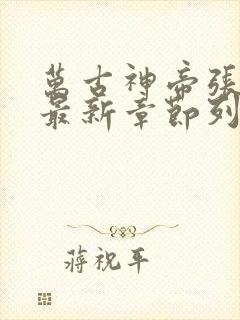 萬古神帝張
最新章節列
蔣祝平